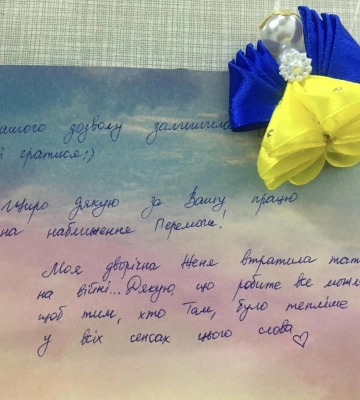 ашого дозволу залишила
і гратися;)
Щиро дякую за Вашу працю
на наближення Перемоги!
Моя дворічна Женя втратила тат
на війні... Дякую, що робите все можл
щоб тим, хто там, було тепліше
у всіх сенсах цього слова♡